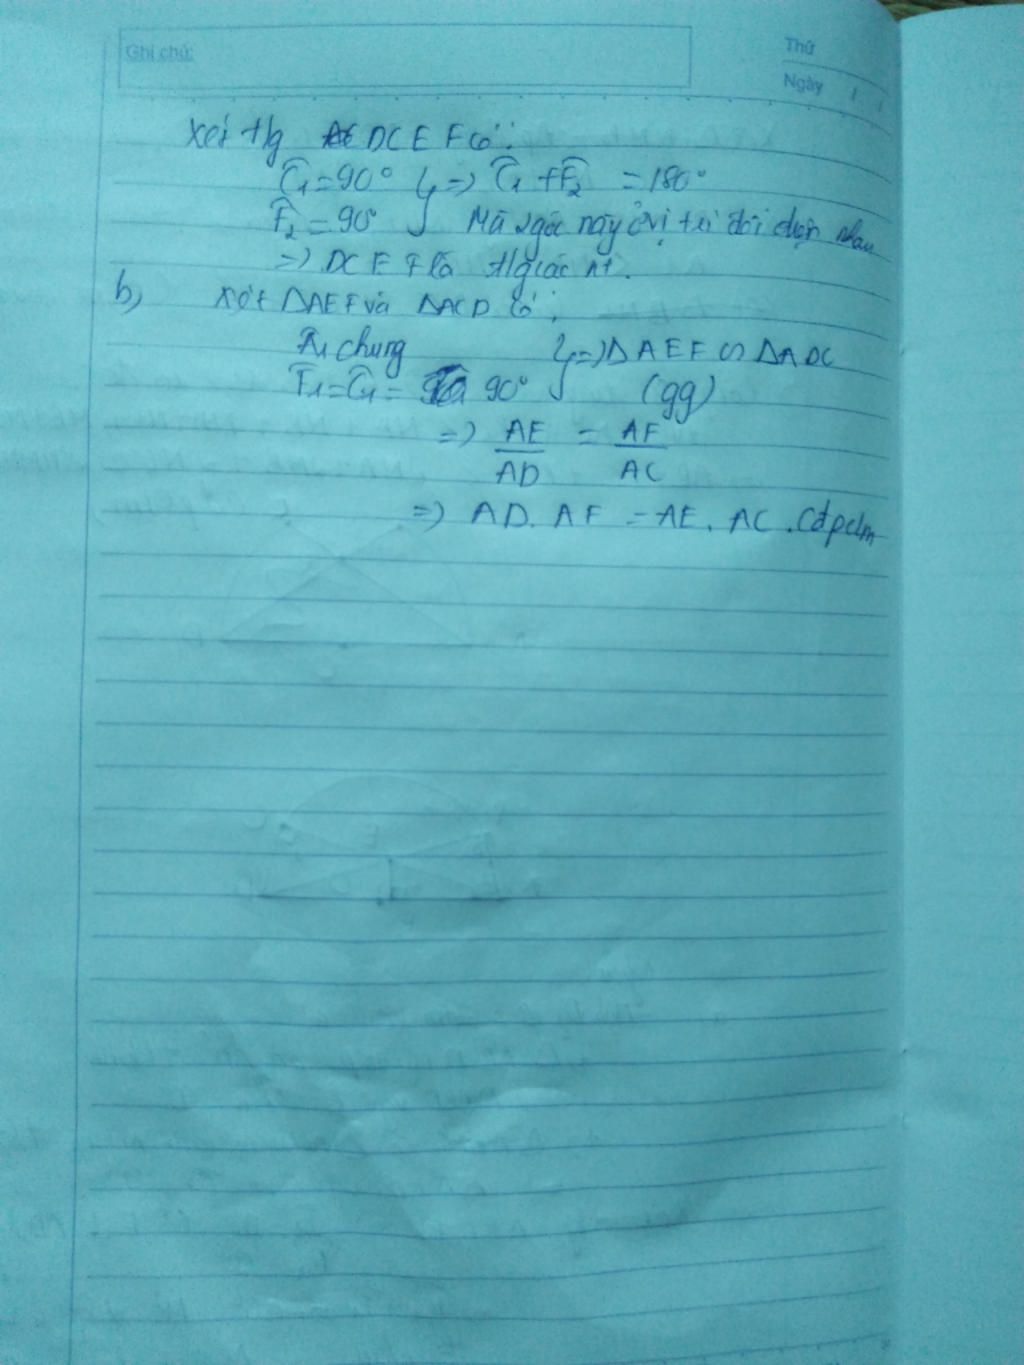 Ghi chú:
Thứ
Ngày / /
Xét tg DCEF có:
Ĉ₁ = 90° } => Ĉ₁ + F̂₂ = 180°
F̂₂ = 90° } Mà 2 góc này ở vị trí đối diện nhau
=> DCEF là tg giác nt.
b) Xét ΔAEF và ΔACD có:
Â₁ chung } => ΔAEF ∽ ΔADC
F̂₁ = Ĉ₁ = 90° } (gg)
=> AE/AD = AF/AC
=> AD. AF = AE. AC. Cđpcm